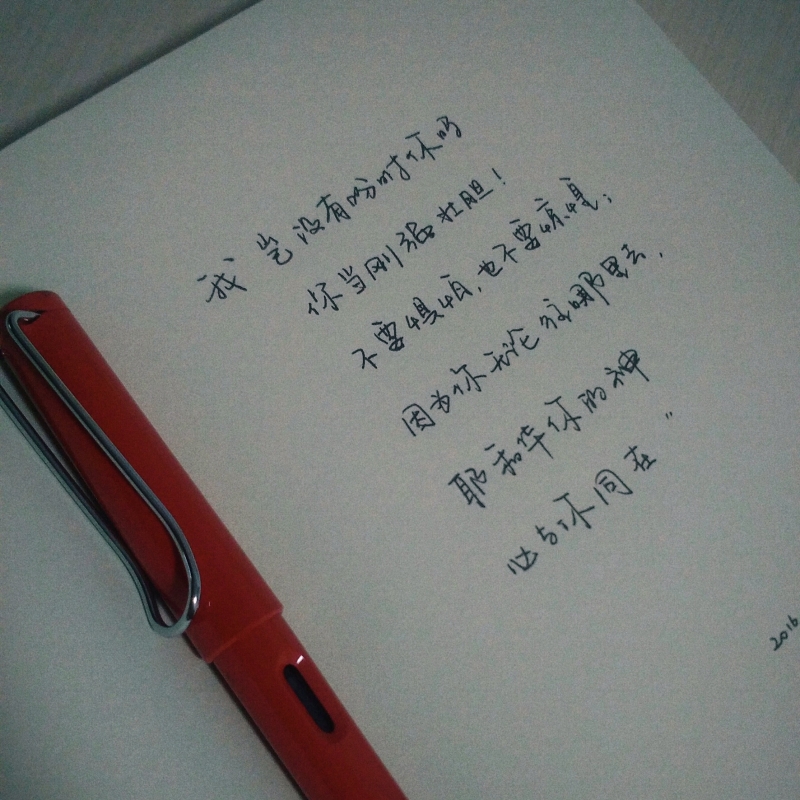 我岂没有吩咐你吗
你当刚强壮胆！
不要惧怕，也不要惊惶；
因为你无论往哪里去，
耶和华你的神
必与你同在”
2016